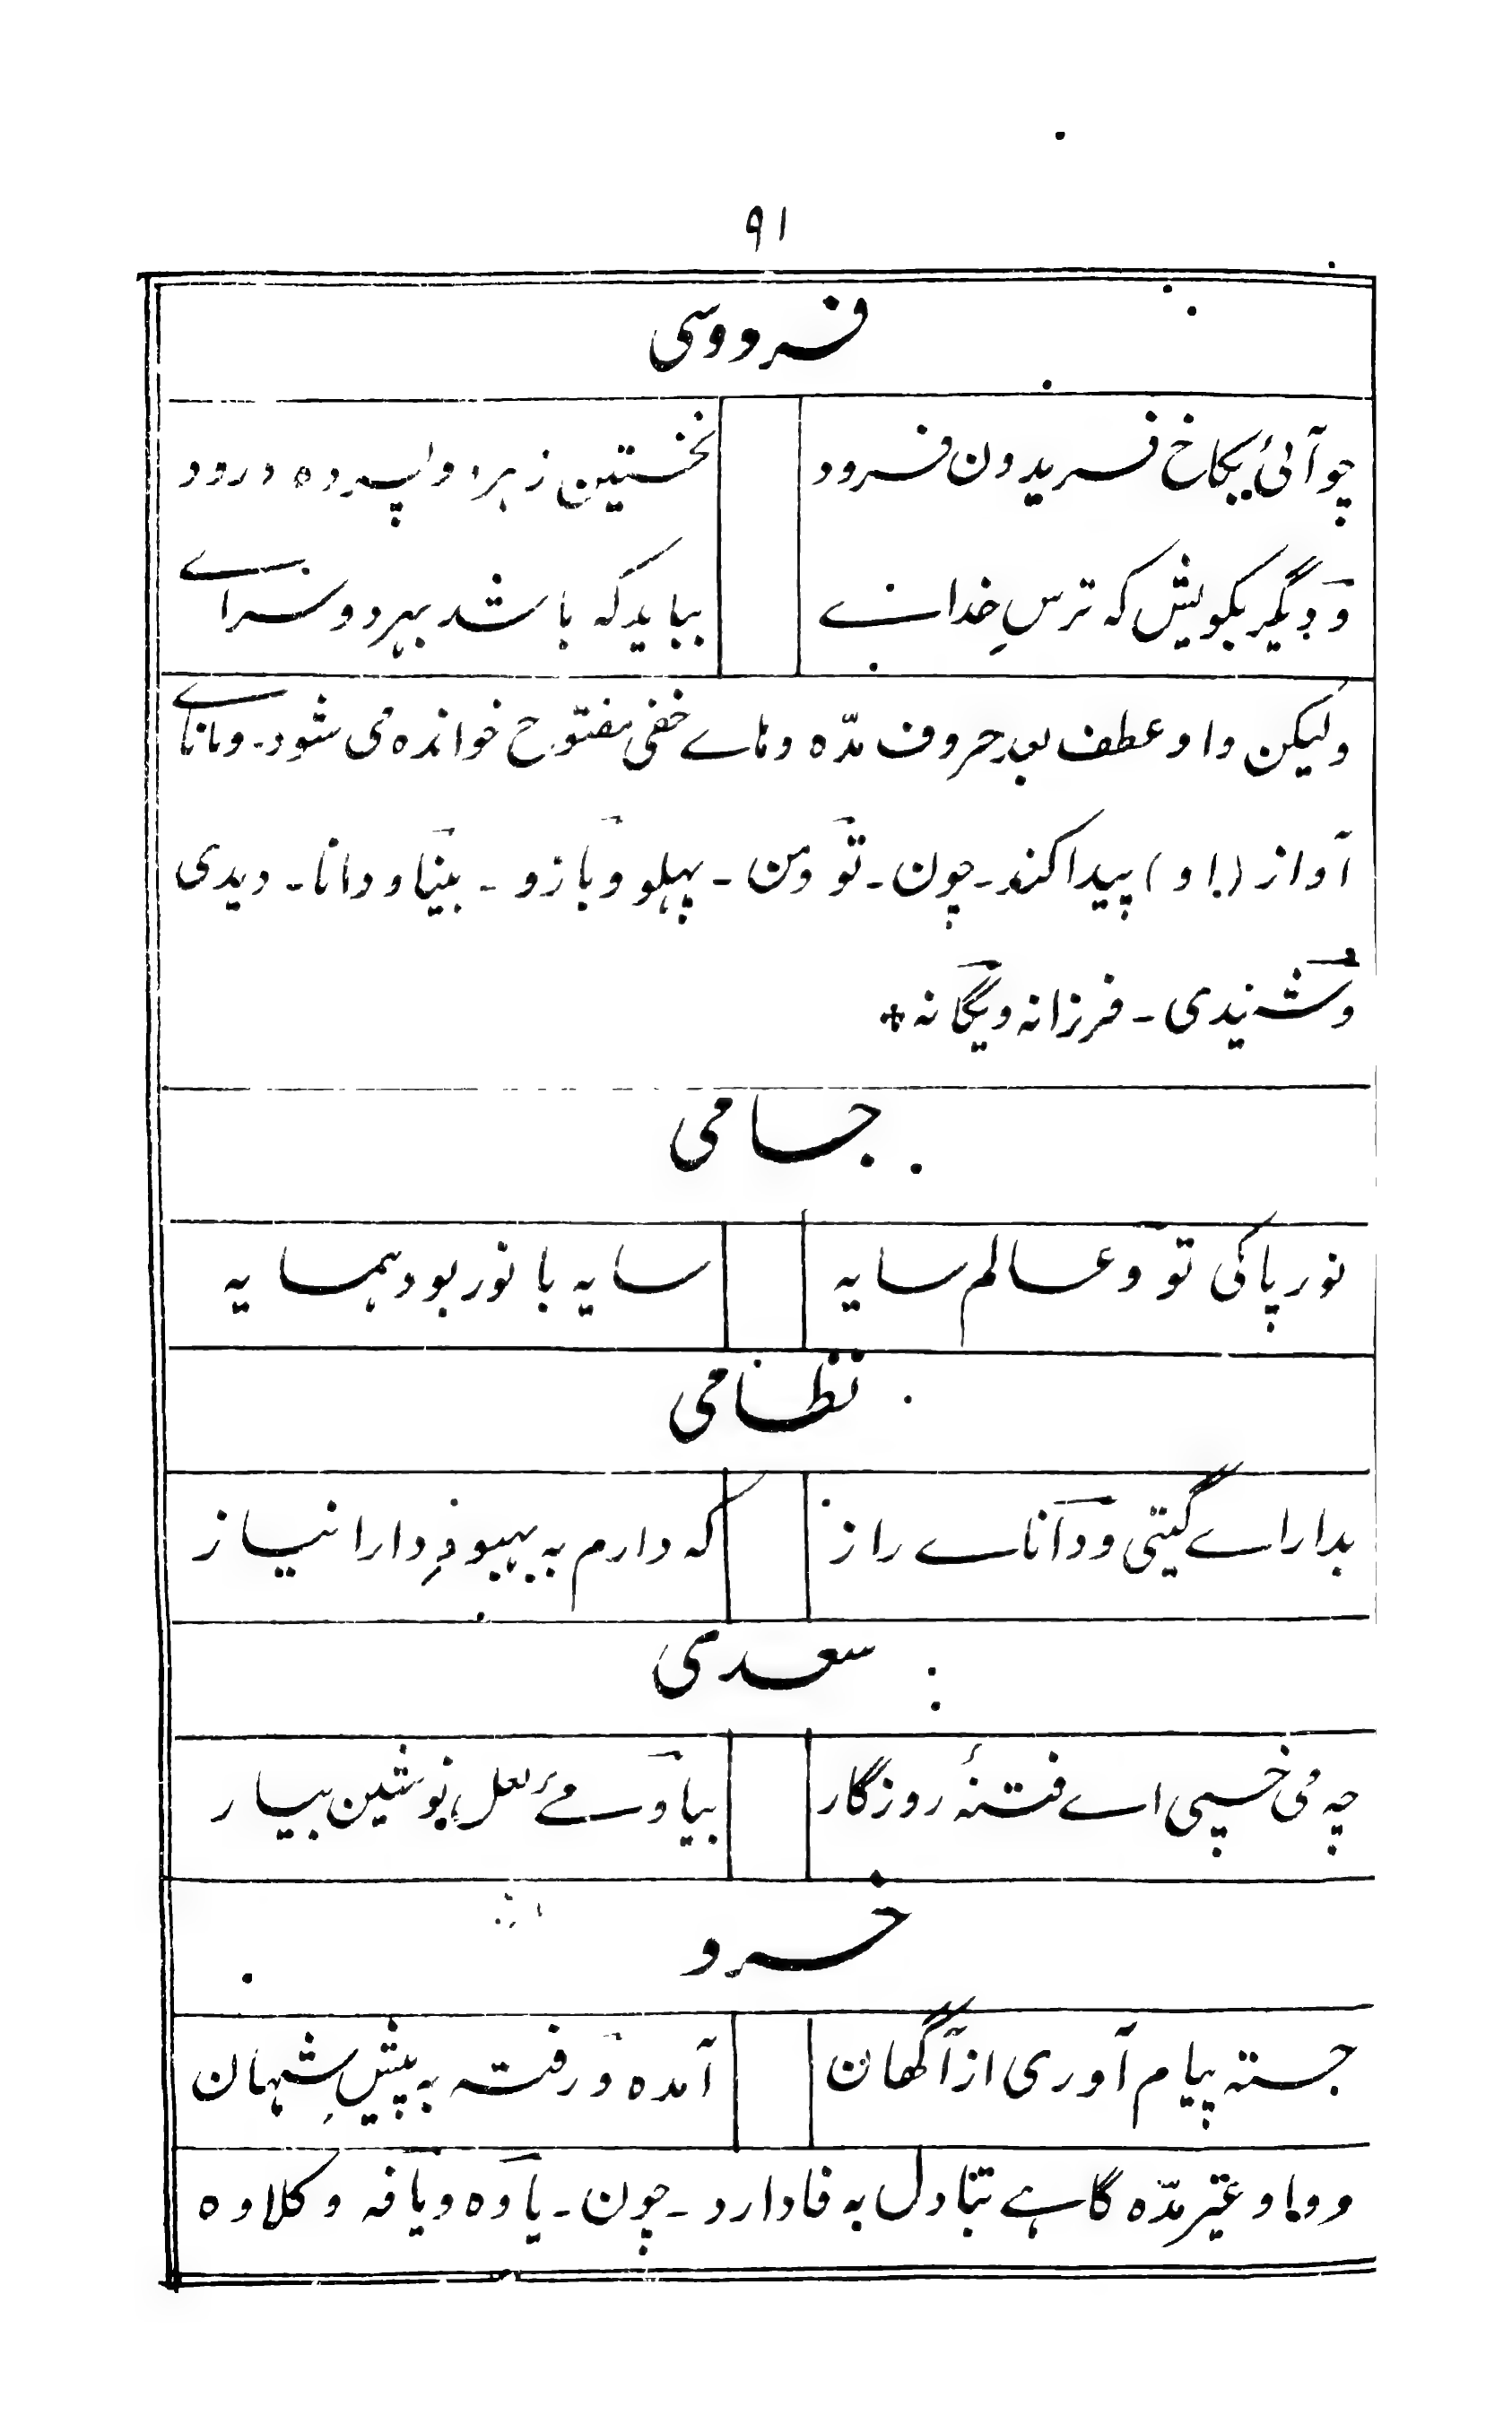 ۹۱
فردوسی
چو آئی بکاخ فریدون فرود نخستین ز هر دو پسر ده درود
وَ دیگر بگویش که ترسِ خدائے بباید که باشد بهر دو سرائے
ولیکن واو عطف بعد حروف مدّه وهاے خفی مفتوح خوانده می شود۔ ومانائے
آواز (او) پیدا کند۔ چون۔ تو وَمن ۔ پہلو وَبازو ۔ بینا وَدانا۔ دیدی
وَشنیدی ۔ فرزانه وَیگانه +
جامی
نور پاکی تو وَ عالم سایه سایه با نور بود همسایه
نظامی
بداراے گیتی وَ داناے راز که دارم به بهبودِ دارا نیاز
سعدی
چه می خسپی اے فتنۂ روزگار بیا وَ مئے لعلِ نوشین بیار
خسرو
جسته پیام آوری از آگهان آمده وَ رفته به پیشِ شهان
و واو غیر مدّه گاہے تبادل به فا دارد ۔ چون ۔ یاوه و یافه و کلاوه